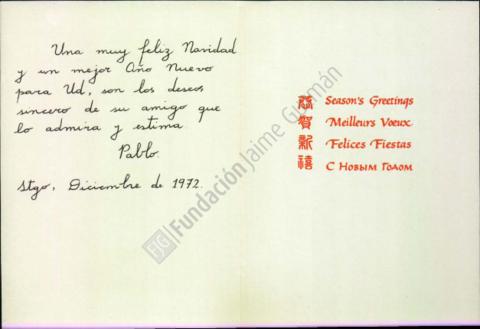 Una muy feliz Navidad
y un mejor Año Nuevo
para Ud, son los deseos
sincero de su amigo que
lo admira y estima.
Pablo.
Stgo, Diciembre de 1972.
恭賀新禧
Season's Greetings
Meilleurs Voeux
Felices Fiestas
С Новым Годом
FJG Fundación Jaime Guzmán